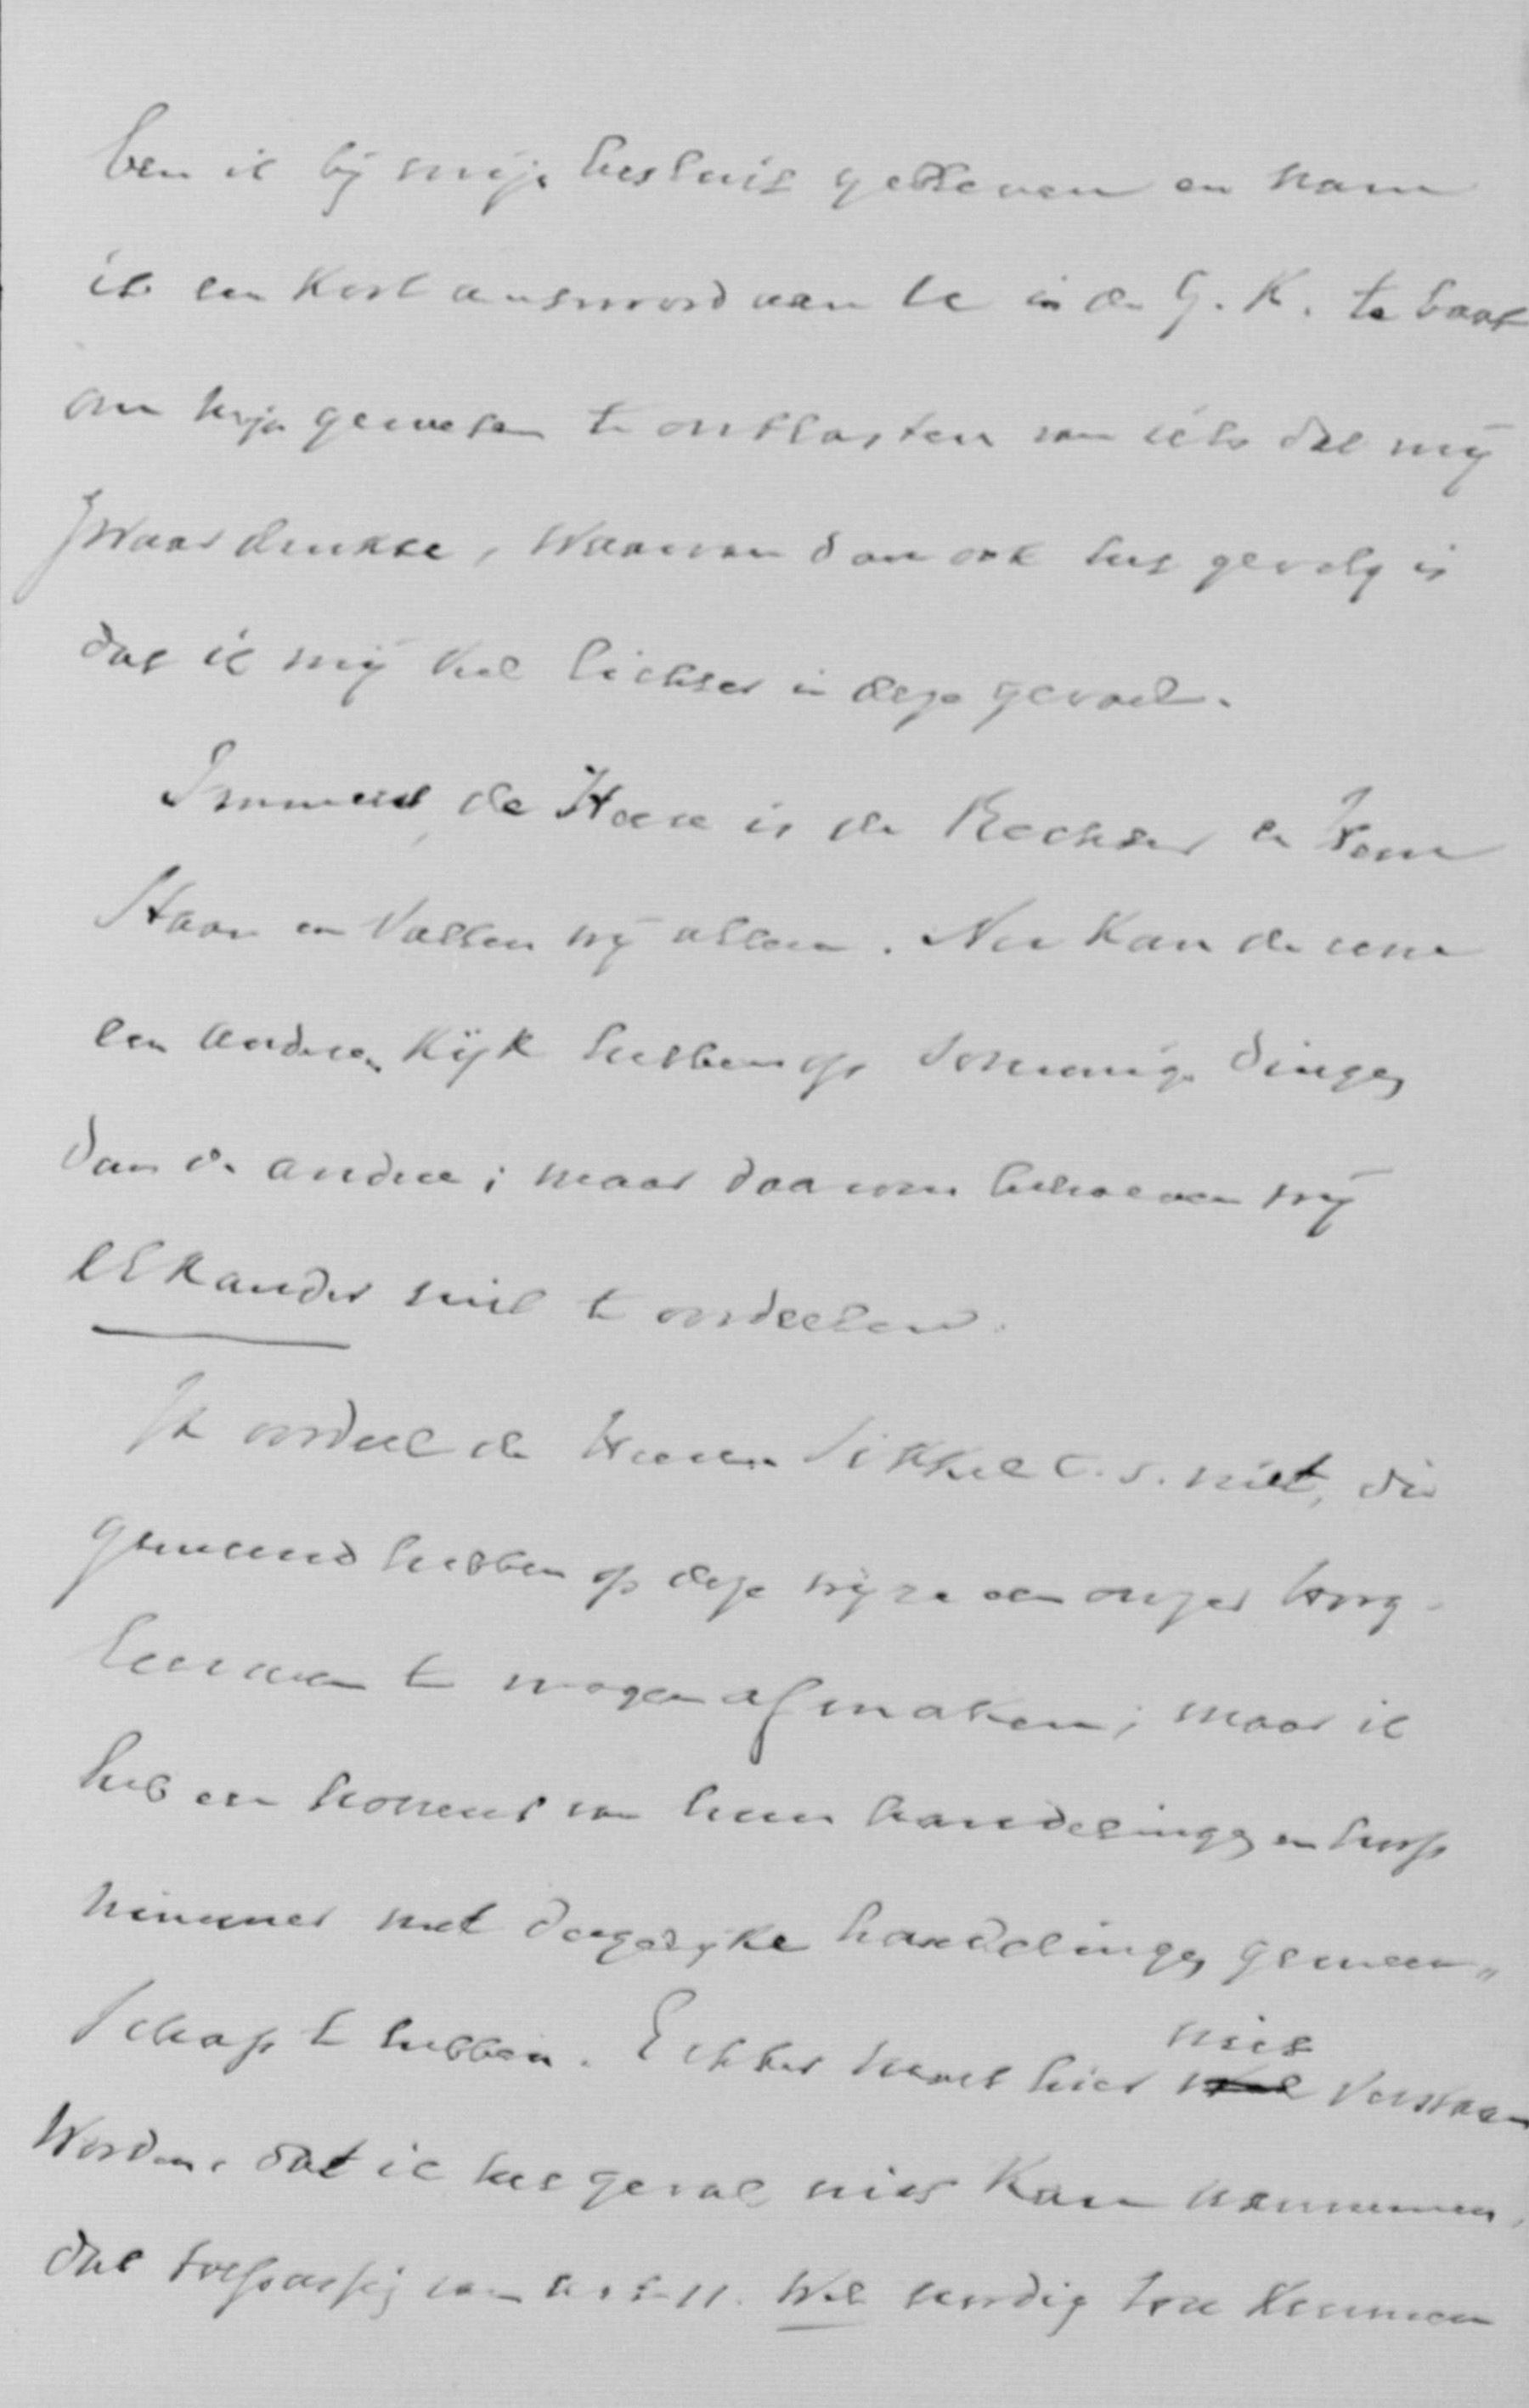 ben ik bij mijn besluit gebleven en nam
ik een kort antwoord aan te in de G. K. te baat
om mijn geweten te ontlasten van iets dat mij
zwaar drukte, waarvan dan ook het gevolg is
dat ik mij veel lichter in deze gevoel.
Immers de Heere is de Rechter en Hem
staan en vallen wij allen. Nu kan de eene
een anderen kijk hebben op sommige dingen
dan de andere; maar daarom behoeven wij
elkander niet te oordeelen.
Ik oordeel de Heeren Sikkel c.s. niet, die
gemeend hebben op deze wijze een onzer hoog-
leeraren te mogen afmaken; maar ik
heb een horreur van hun handelingen en hoop
nimmer met dergelijke handelingen gemeen„
schap te hebben. Echter moet hier niet verstaan
worden, dat ik het geval niet kan aannemen,
dat toepassing van art. 11. wel noodig zou kunnen